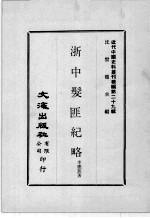 近代中國史料叢刊續編第二十九輯
沈雲龍主編
浙中髮匪紀略
文海出版社有限公司印行